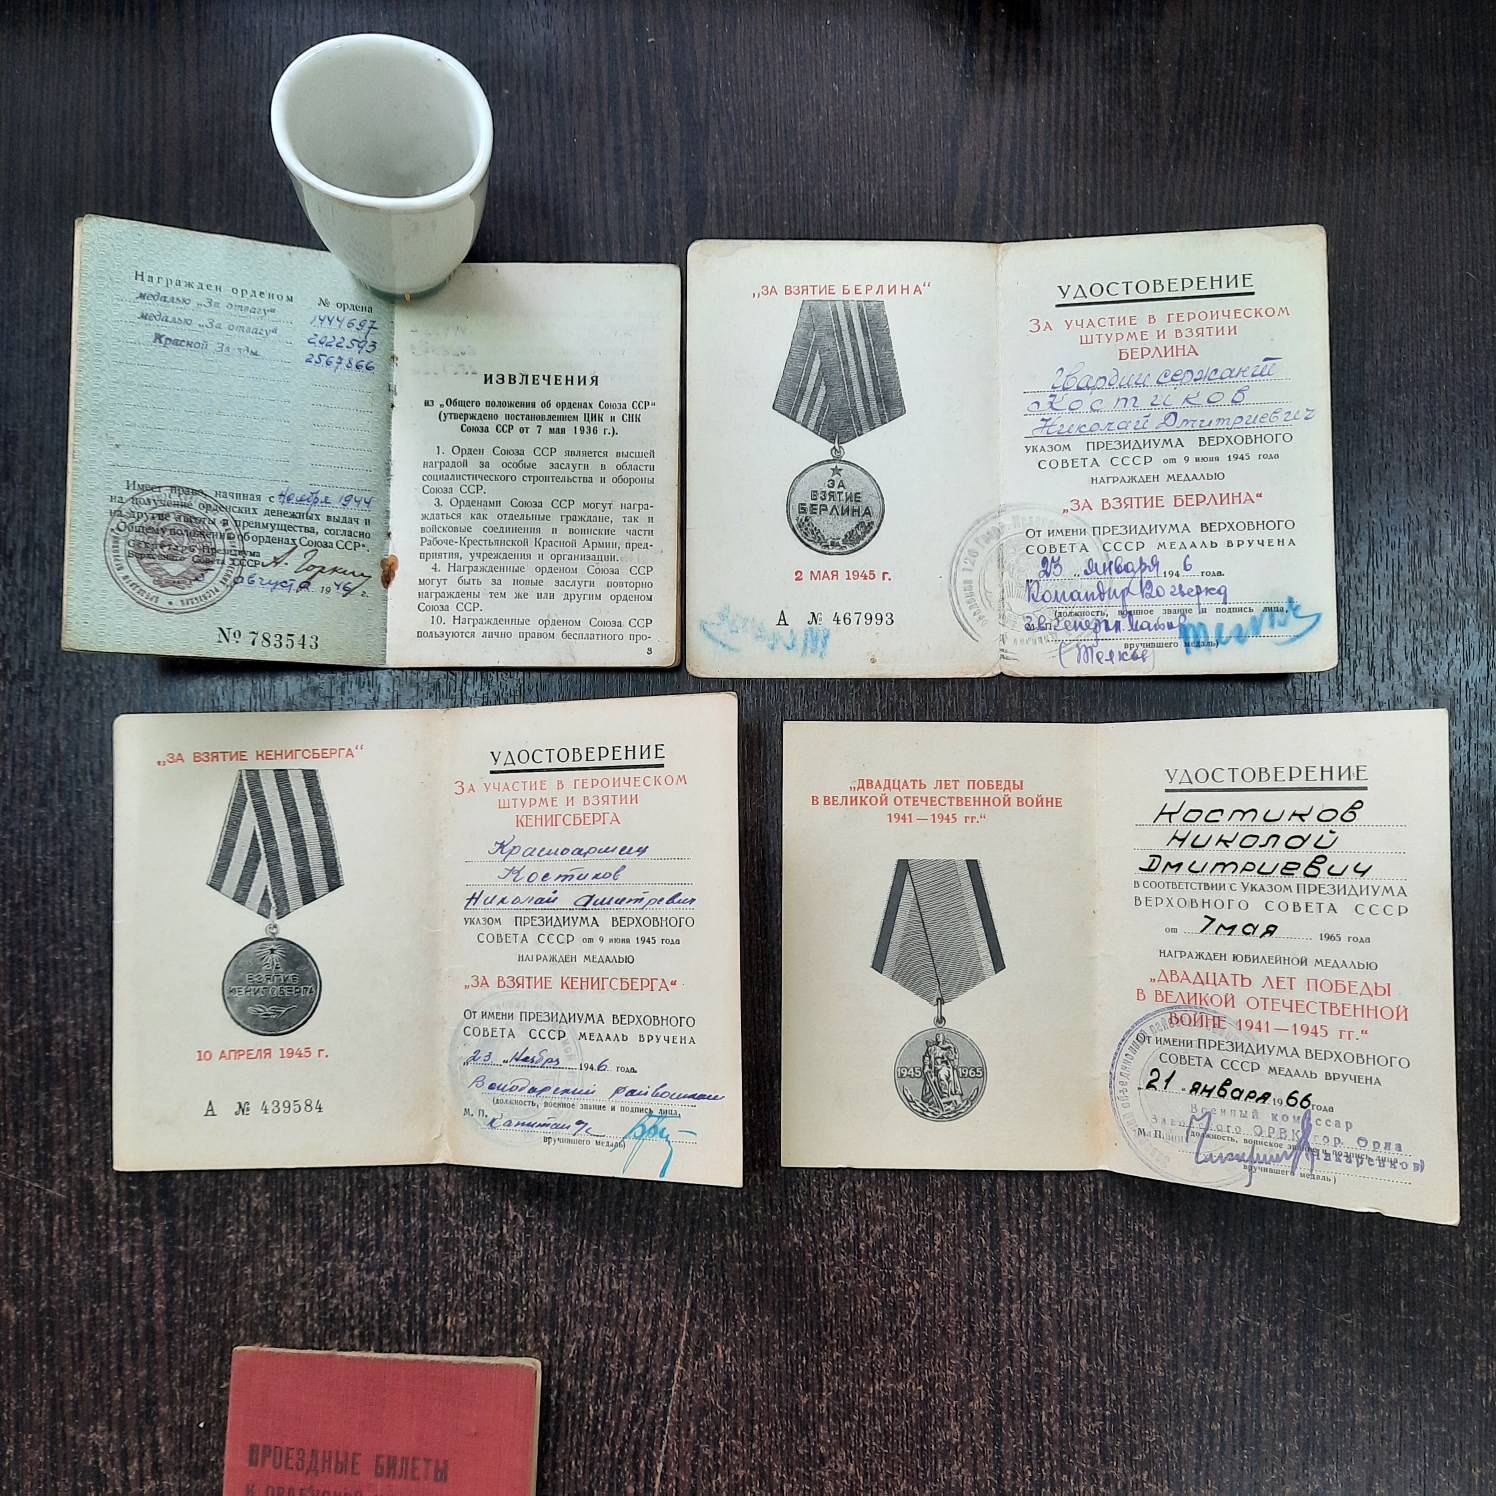 Награжден орденом
№ ордена
медалью „За отвагу“ 1444697
медалью „За отвагу“ 2922593
Красной Звезды 2567866
Имеет право, начиная с Ноября 1944
на получение орденских денежных выдач и
на другие льготы и преимущества, согласно
„Общему положению об орденах Союза ССР“.
Секретарь Президиума
Верховного Совета СССР А. Горкин
августа 1946 г.
№ 783543
ИЗВЛЕЧЕНИЯ
из „Общего положения об орденах Союза ССР“
(утверждено постановлением ЦИК и СНК
Союза ССР от 7 мая 1936 г.).
1. Орден Союза ССР является высшей
наградой за особые заслуги в области
социалистического строительства и обороны
Союза ССР.
3. Орденами Союза ССР могут награ-
ждаться как отдельные граждане, так и
войсковые соединения и воинские части
Рабоче-Крестьянской Красной Армии, пред-
приятия, учреждения и организации.
4. Награжденные орденом Союза ССР
могут быть за новые заслуги повторно
награждены тем же или другим орденом
Союза ССР.
10. Награжденные орденом Союза ССР
пользуются лично правом бесплатного про-
3
„ЗА ВЗЯТИЕ БЕРЛИНА“
ЗА
ВЗЯТИЕ
БЕРЛИНА
2 МАЯ 1945 г.
А № 467993
УДОСТОВЕРЕНИЕ
ЗА УЧАСТИЕ В ГЕРОИЧЕСКОМ
ШТУРМЕ И ВЗЯТИИ
БЕРЛИНА
Гвардии сержант
Костиков
Николай Дмитриевич
УКАЗОМ ПРЕЗИДИУМА ВЕРХОВНОГО
СОВЕТА СССР от 9 июня 1945 года
НАГРАЖДЕН МЕДАЛЬЮ
„ЗА ВЗЯТИЕ БЕРЛИНА“
ОТ ИМЕНИ ПРЕЗИДИУМА ВЕРХОВНОГО
СОВЕТА СССР МЕДАЛЬ ВРУЧЕНА
„23“ января 1946 года.
Командир
(должность, воинское звание и подпись лица,
М. П.
вручившего медаль)
„ЗА ВЗЯТИЕ КЕНИГСБЕРГА“
ЗА
ВЗЯТИЕ
КЕНИГСБЕРГА
10 АПРЕЛЯ 1945 г.
А № 439584
УДОСТОВЕРЕНИЕ
ЗА УЧАСТИЕ В ГЕРОИЧЕСКОМ
ШТУРМЕ И ВЗЯТИИ
КЕНИГСБЕРГА
Красноармеец
Костиков
Николай Дмитревич
УКАЗОМ ПРЕЗИДИУМА ВЕРХОВНОГО
СОВЕТА СССР от 9 июня 1945 года
НАГРАЖДЕН МЕДАЛЬЮ
„ЗА ВЗЯТИЕ КЕНИГСБЕРГА“
ОТ ИМЕНИ ПРЕЗИДИУМА ВЕРХОВНОГО
СОВЕТА СССР МЕДАЛЬ ВРУЧЕНА
„23“ Ноябр 1946 года.
Володарский райвоенком
(должность, военное звание и подпись лица,
М. П. капитан
вручившего медаль)
„ДВАДЦАТЬ ЛЕТ ПОБЕДЫ
В ВЕЛИКОЙ ОТЕЧЕСТВЕННОЙ ВОЙНЕ
1941—1945 гг.“
1945 1965
УДОСТОВЕРЕНИЕ
Костиков
Николай
Дмитриевич
В СООТВЕТСТВИИ С УКАЗОМ ПРЕЗИДИУМА
ВЕРХОВНОГО СОВЕТА СССР
от 7 мая 1965 года
НАГРАЖДЕН ЮБИЛЕЙНОЙ МЕДАЛЬЮ
„ДВАДЦАТЬ ЛЕТ ПОБЕДЫ
В ВЕЛИКОЙ ОТЕЧЕСТВЕННОЙ
ВОЙНЕ 1941—1945 гг.“
ОТ ИМЕНИ ПРЕЗИДИУМА ВЕРХОВНОГО
СОВЕТА СССР МЕДАЛЬ ВРУЧЕНА
21 января 1966 года
Военный комиссар
ОРВК гор. Орла
М. П. (должность, воинское звание и подпись лица,
(Макаренков)
вручившего медаль)
ПРОЕЗДНЫЕ БИЛЕТЫ